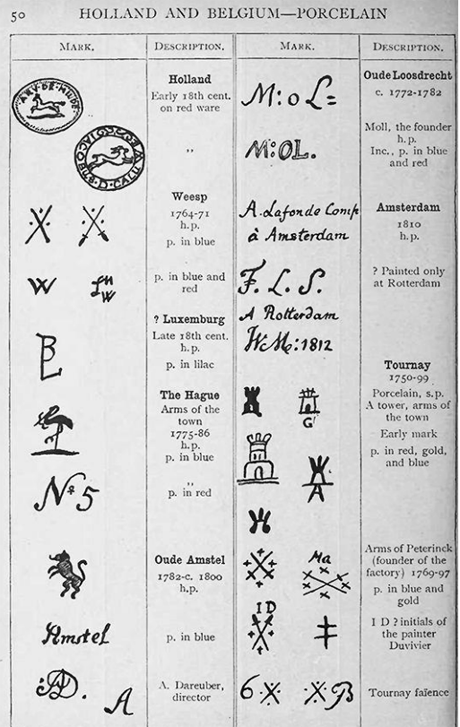 50 HOLLAND AND BELGIUM—PORCELAIN
MARK.
DESCRIPTION.
MARK.
DESCRIPTION.
ARY·DE·MILDE
Holland
Early 18th cent.
on red ware
"
Weesp
1764-71
h.p.
p. in blue
W
W
p. in blue and
red
? Luxemburg
Late 18th cent.
h.p.
p. in lilac
BL
The Hague
Arms of the
town
1775-86
h.p.
p. in blue
"
p. in red
No 5
Oude Amstel
1782-c. 1800
h.p.
Amstel
p. in blue
AD.
A
A. Dareuber,
director
M:oL=
Oude Loosdrecht
c. 1772-1782
M:OL.
Moll, the founder
h.p.
Inc., p. in blue
and red
A. Lafonde Comp
à Amsterdam
Amsterdam
1810
h.p.
F. L. S.
A Rotterdam
? Painted only
at Rotterdam
1812
Tournay
1750-99
Porcelain, s.p.
A tower, arms of
the town
Early mark
p. in red, gold,
and blue
G
Ma
Arms of Peterinck
(founder of the
factory) 1769-97
p. in blue and
gold
I D
I D ? initials of
the painter
Duvivier
6
B
Tournay faïence